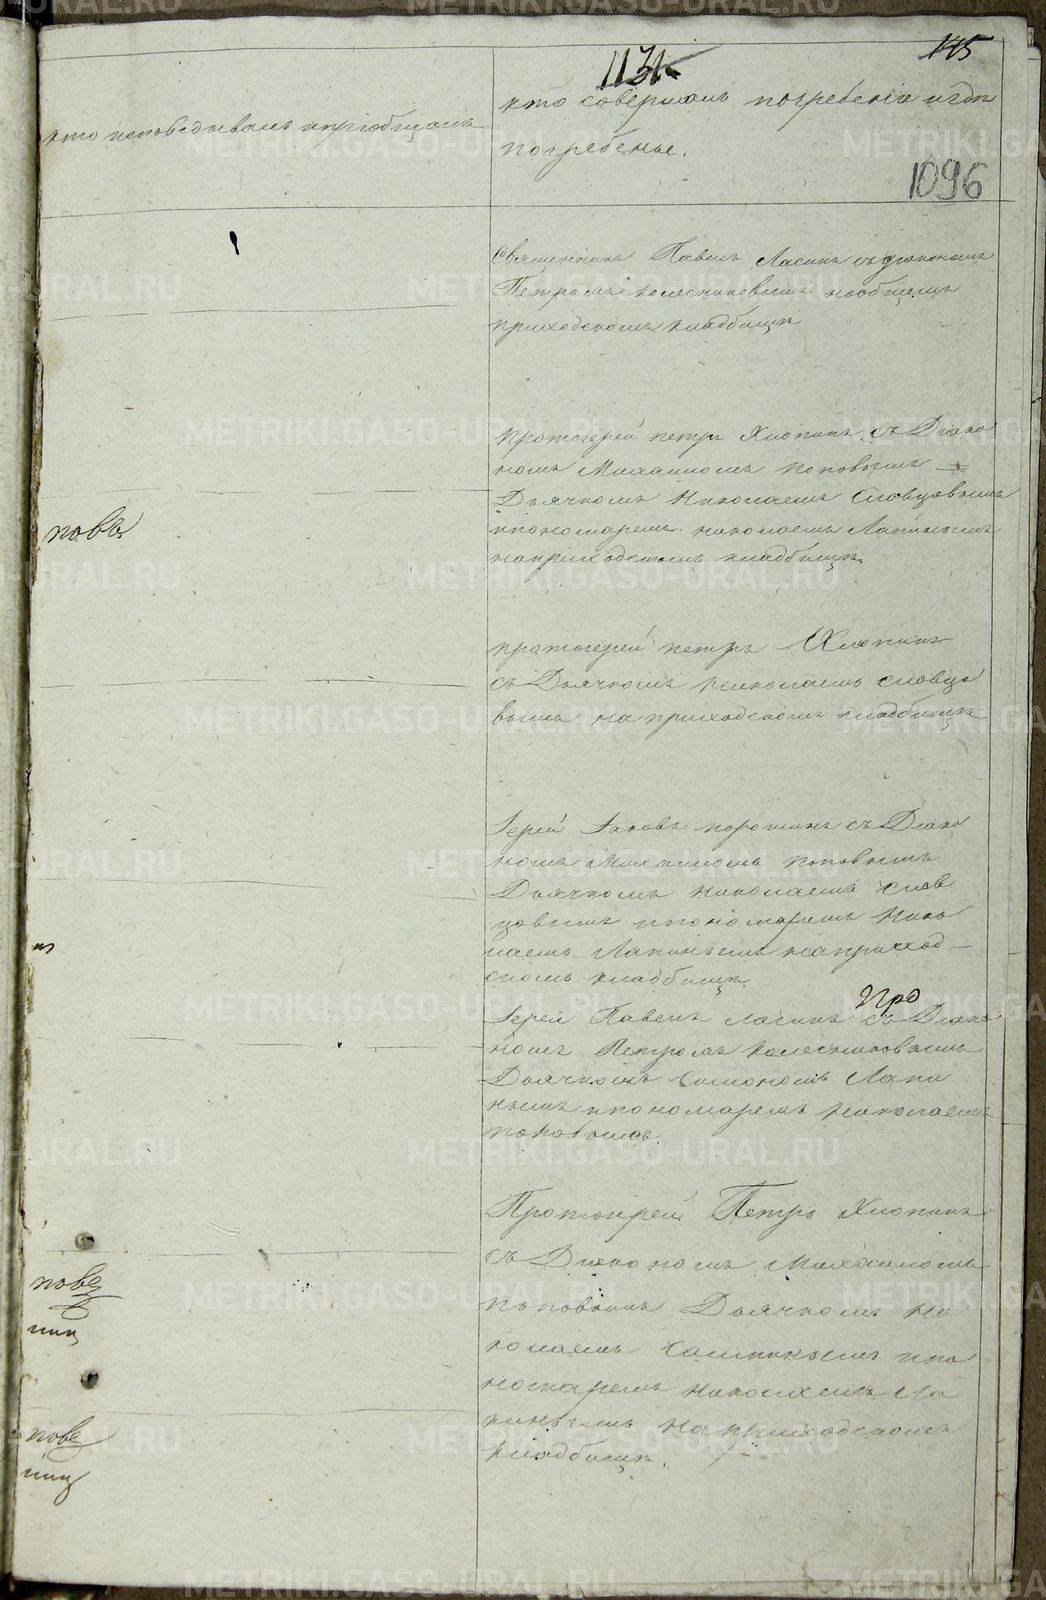 1131
145
кто исповедывалъ и пріобщалъ
кто совершалъ погребеніе и где
погребены.
1096
Священникъ Павелъ Ласинъ съ дьякономъ
Петромъ Колесниковымъ на общемъ
приходскомъ кладбище
Протоіерей Петръ Хлопинъ съ Діако
номъ Михаиломъ Поповымъ
Дьячкомъ Николаемъ Словцовымъ
и пономаремъ Николаемъ Лапинымъ
на приходскомъ кладбище.
пове
протоіерей Петръ Хлопинъ
съ Дьячкомъ Николаемъ Словцо
вымъ на приходскомъ кладбище
Іерей Іаковъ Порошинъ съ Діако
номъ Михаиломъ Поповымъ
Дьячкомъ Николаемъ Слов
цовымъ и пономаремъ Нико
лаемъ Лапинымъ на приход
скомъ кладбище
Іерей Павелъ Ласинъ съ Діако
номъ Петромъ Колесниковымъ
Дьячкомъ Симономъ Лапи
нымъ и пономаремъ Николаемъ
Поповымъ.
Протоіерей Петръ Хлопинъ
съ Діакономъ Михаиломъ
Поповымъ Дьячкомъ Ни
колаемъ и поно
пове
номаремъ Николаемъ Ла
пинымъ на приходскомъ
кладбище.
пове
METRIKI.GASO-URAL.RU